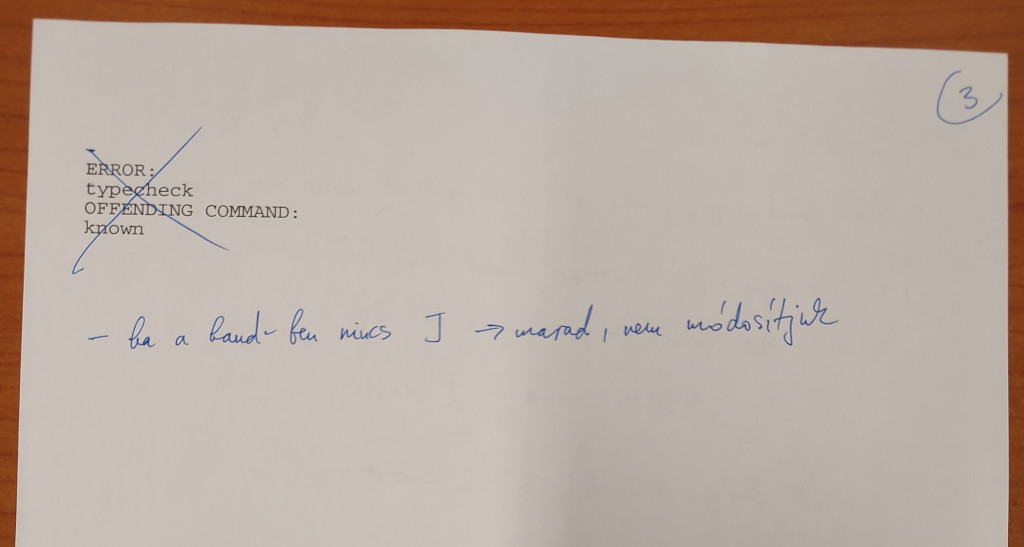 3
ERROR:
typecheck
OFFENDING COMMAND:
known
- ha a hand-ben nincs J → marad, nem módosítjuk